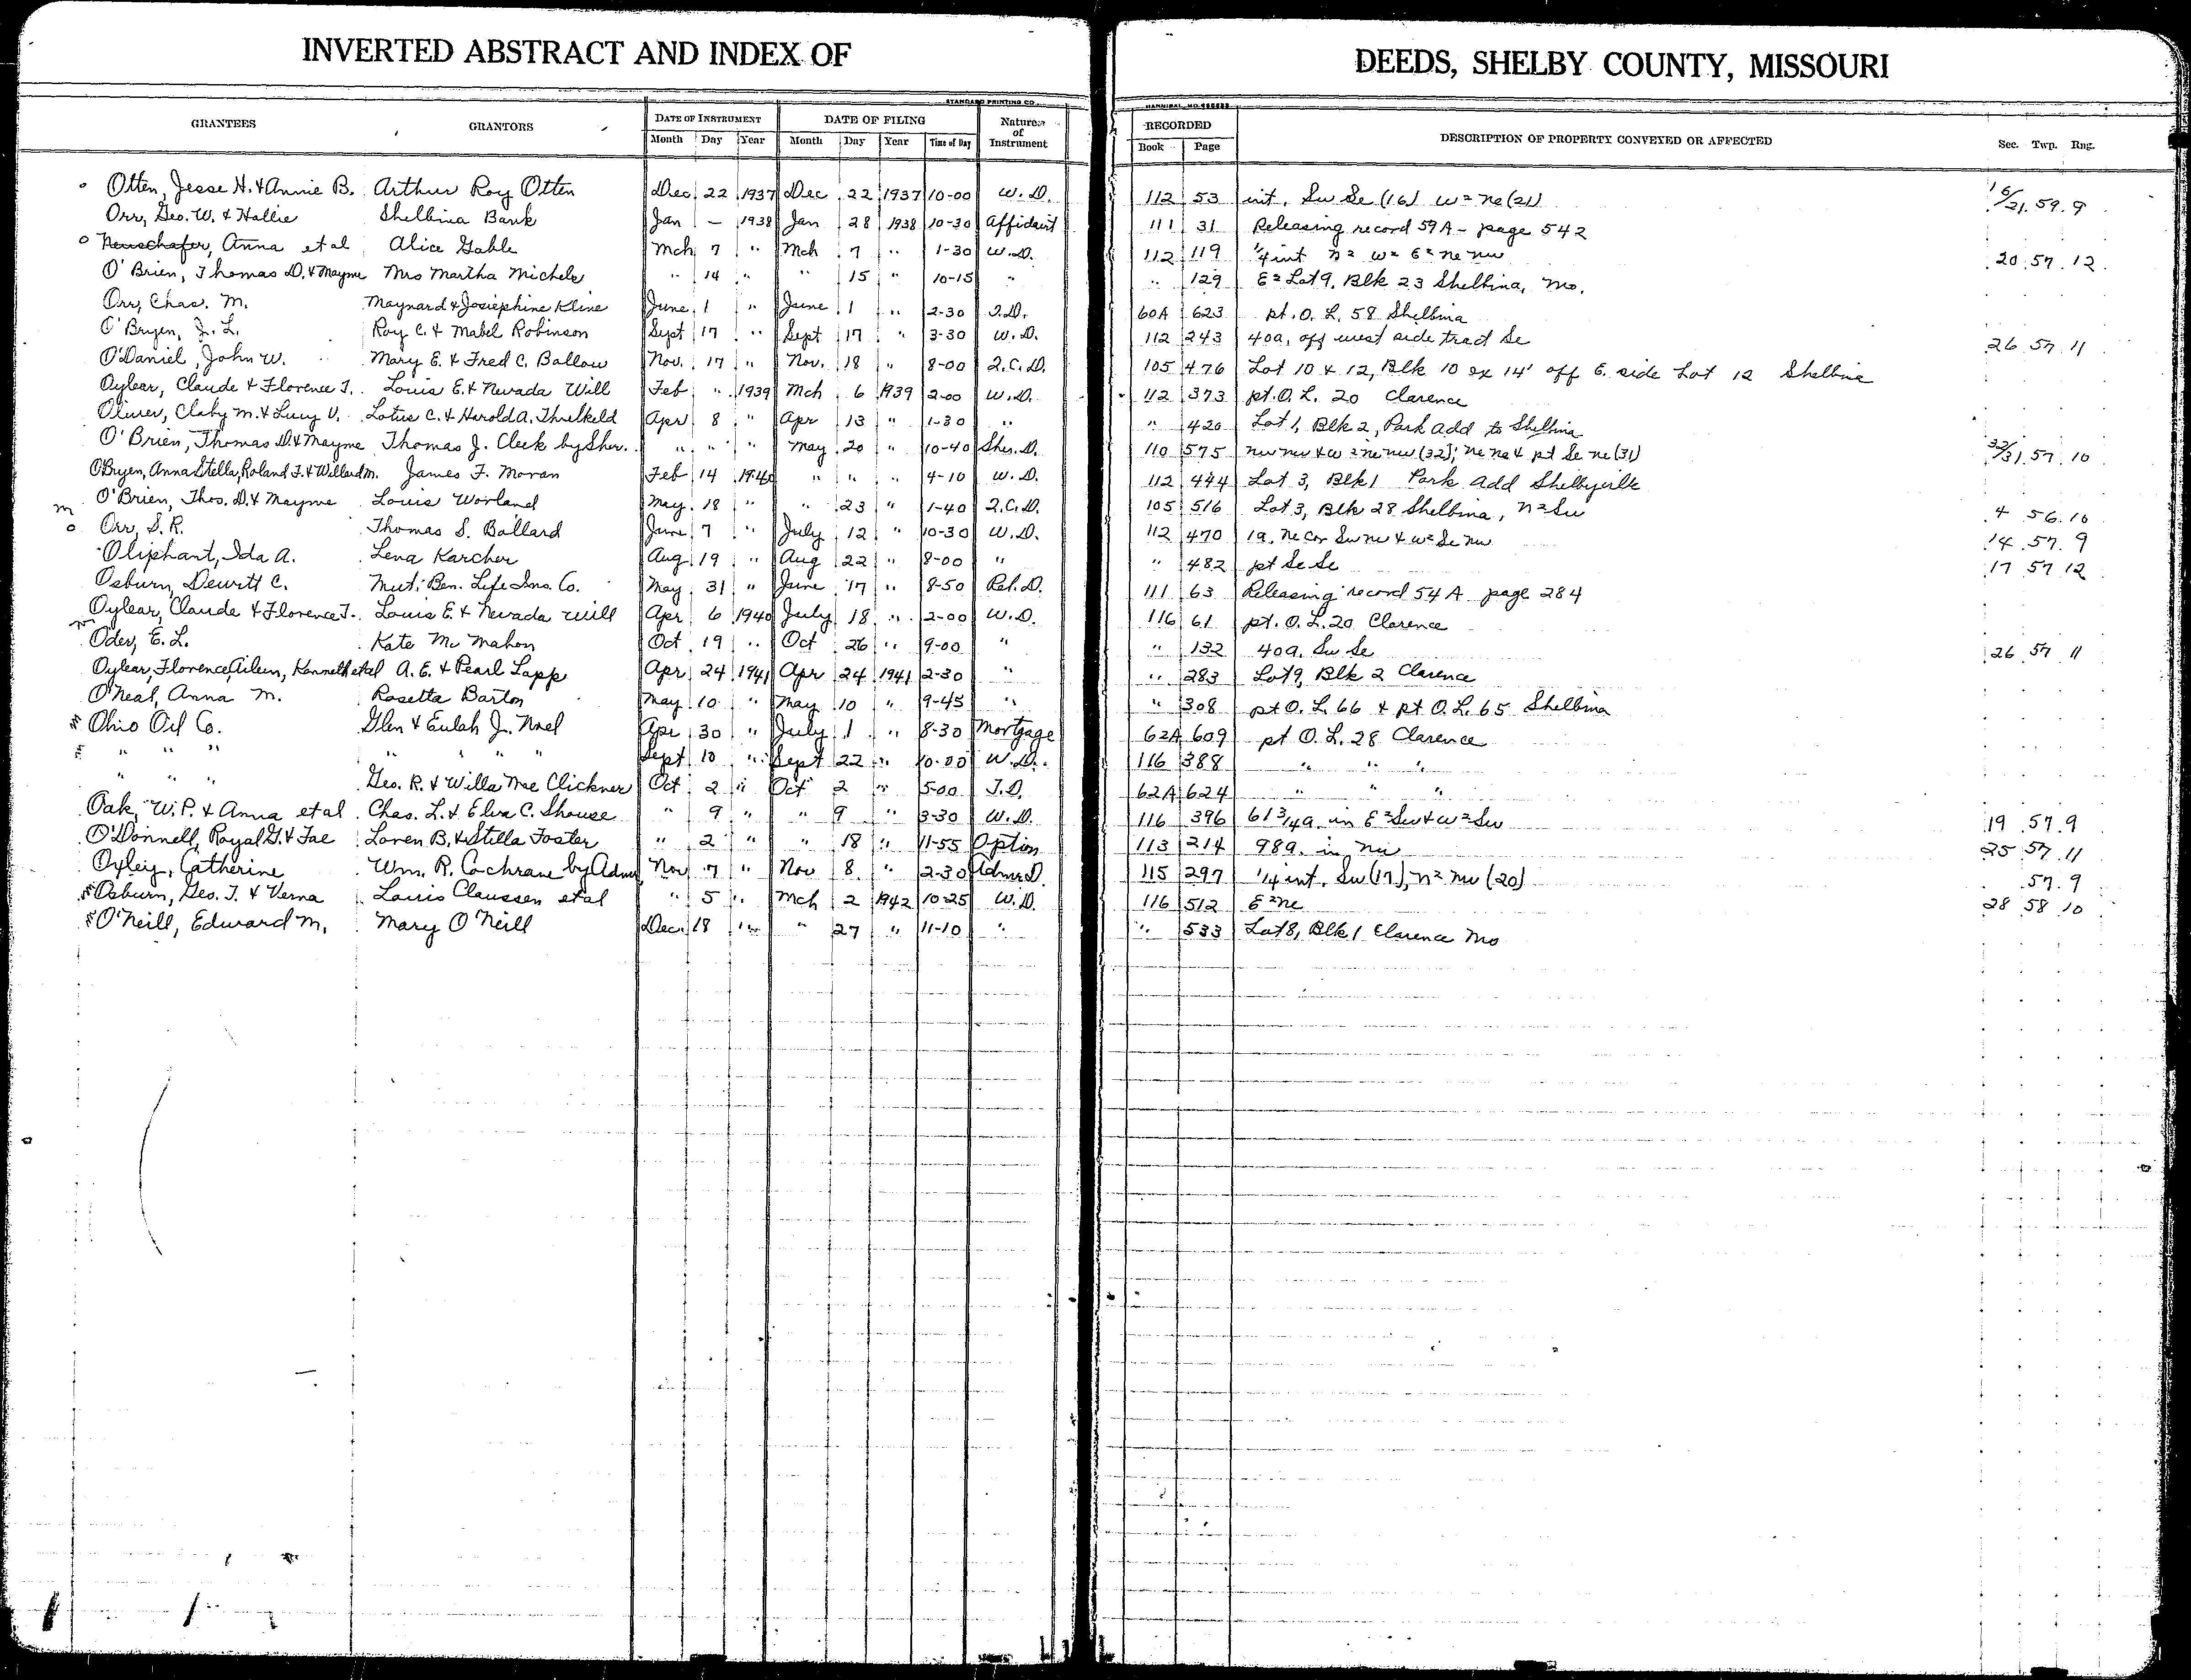 INVERTED ABSTRACT AND INDEX OF DEEDS, SHELBY COUNTY, MISSOURI
STANDARD PRINTING CO. HANNIBAL, MO.
GRANTEES GRANTORS DATE OF INSTRUMENT DATE OF FILING Nature of Instrument RECORDED DESCRIPTION OF PROPERTY CONVEYED OR AFFECTED Sec. Twp. Rng.
Month Day Year Month Day Year Time of Day Book Page
Otten, Jesse H. & Annie B. Arthur Roy Otten Dec 22 1937 Dec 22 1937 10-00 W. D. 112 53 int. Sw Se (16) W 2 ne (21) 16/21. 59. 9
Orr, Geo. W. & Hallie Shelbina Bank Jan – 1938 Jan 28 1938 10-30 Affidavit 111 31 Releasing record 59A - page 542
Neuschafer, Anna et al Alice Gable Mch 7 " Mch 7 " 1-30 W. D. 112 119 1/4 int n 2 w 2 E 2 ne nw 20. 57. 12
O'Brien, Thomas D. & Mayme Mrs Martha Michels " 14 " " 15 " 10-15 " " 129 E 2 Lot 9, Blk 23 Shelbina, Mo.
Orr, Chas. M. Maynard & Josiephine Kline June 1 " June 1 " 2-30 T. D. 60A 623 pt. O. L. 58 Shelbina
O'Bryen, J. L. Roy C. & Mabel Robinson Sept 17 " Sept 17 " 3-30 W. D. 112 243 40a, off west side tract Se 26 57 11
O'Daniel, John W. Mary E. & Fred C. Ballow Nov. 17 " Nov. 18 " 8-00 Q. C. D. 105 476 Lot 10 & 12, Blk 10 ex 14' off E. side Lot 12 Shelbina
Oylear, Claude & Florence T. Louis E. & Nevada Will Feb " 1939 Mch 6 1939 2-00 W. D. 112 373 pt. O. L. 20 Clarence
Oliver, Claby M. & Lucy V. Lotus C. & Harold A. Threlkeld Apr 8 " Apr 13 " 1-30 " " 420 Lot 1, Blk 2, Park add to Shelbina
O'Brien, Thomas D. & Mayme Thomas J. Cleek by Sher. " " " May 20 " 10-40 Sher. D. 110 575 nw nw & w 2 ne nw (32); ne ne & pt Se ne (31) 32/31. 57. 10
O'Bryen, Anna Stella, Roland F. & Willard M. James F. Moran Feb 14 1940 " " " 4-10 W. D. 112 444 Lot 3, Blk 1 Park add Shelbyville
O'Brien, Thos. D. & Mayme Louis Worland May 18 " " 23 " 1-40 Q. C. D. 105 516 Lot 3, Blk 28 Shelbina, n 2 Sw 4 56. 10
Orr, S. R. Thomas S. Ballard June 7 " July 12 " 10-30 W. D. 112 470 1a. ne cor Sw nw & w 2 Se nw 14. 57. 9
Oliphant, Ida A. Lena Karcher Aug 19 " Aug 22 " 8-00 " " 482 pt Se Se 17 57 12
Osburn, Dewitt C. Mut. Ben. Life Ins. Co. May 31 " June 17 " 8-50 Rel. D. 111 63 Releasing record 54A page 284
Oylear, Claude & Florence T. Louis E. & Nevada Will Apr 6 1940 July 18 " 2-00 W. D. 116 61 pt. O. L. 20 Clarence
Oder, E. L. Kate McMahon Oct 19 " Oct 26 " 9-00 " " 132 40a. Sw Se 26 57 11
Oylear, Florence, Aileen, Kenneth et al A. E. & Pearl Lapp Apr 24 1941 Apr 24 1941 2-30 " " 283 Lot 9, Blk 2 Clarence
O'Neal, Anna M. Rosetta Barton May 10 " May 10 " 9-45 " " 308 pt O. L. 66 & pt O. L. 65 Shelbina
Ohio Oil Co. Glen & Eulah J. Noel Apr 30 " July 1 " 8-30 Mortgage 62A 609 pt O. L. 28 Clarence
" " " " " " " Sept 10 " Sept 22 " 10-00 W. D. 116 388 " " "
" " " Geo. R. & Willa Mae Clickner Oct 2 " Oct 2 " 5-00 T. D. 62A 624 " " "
Oak, W. P. & Anna et al Chas. L. & Elva C. Shouse " 9 " " 9 " 3-30 W. D. 116 396 61 3/4 a. in E 2 Sw & w 2 Sw 19. 57. 9
O'Donnell, Royal G. & Fae Loren B. & Stella Foster " 2 " " 18 " 11-55 Option 113 214 98a. in 25 57 11
Oxley, Catherine Wm. R. Cochrane by Admr Nov 7 " Nov 8 " 2-30 Admr D. 115 297 1/4 int. Sw (17), n 2 nw (20) 57. 9
Osburn, Geo. T. & Verna Louis Claussen et al " 5 " Mch 2 1942 10-25 W. D. 116 512 E 2 ne 28 58 10
O'Neill, Edward M. Mary O'Neill Dec. 18 " " 27 " 11-10 " " 533 Lot 8, Blk 1 Clarence Mo